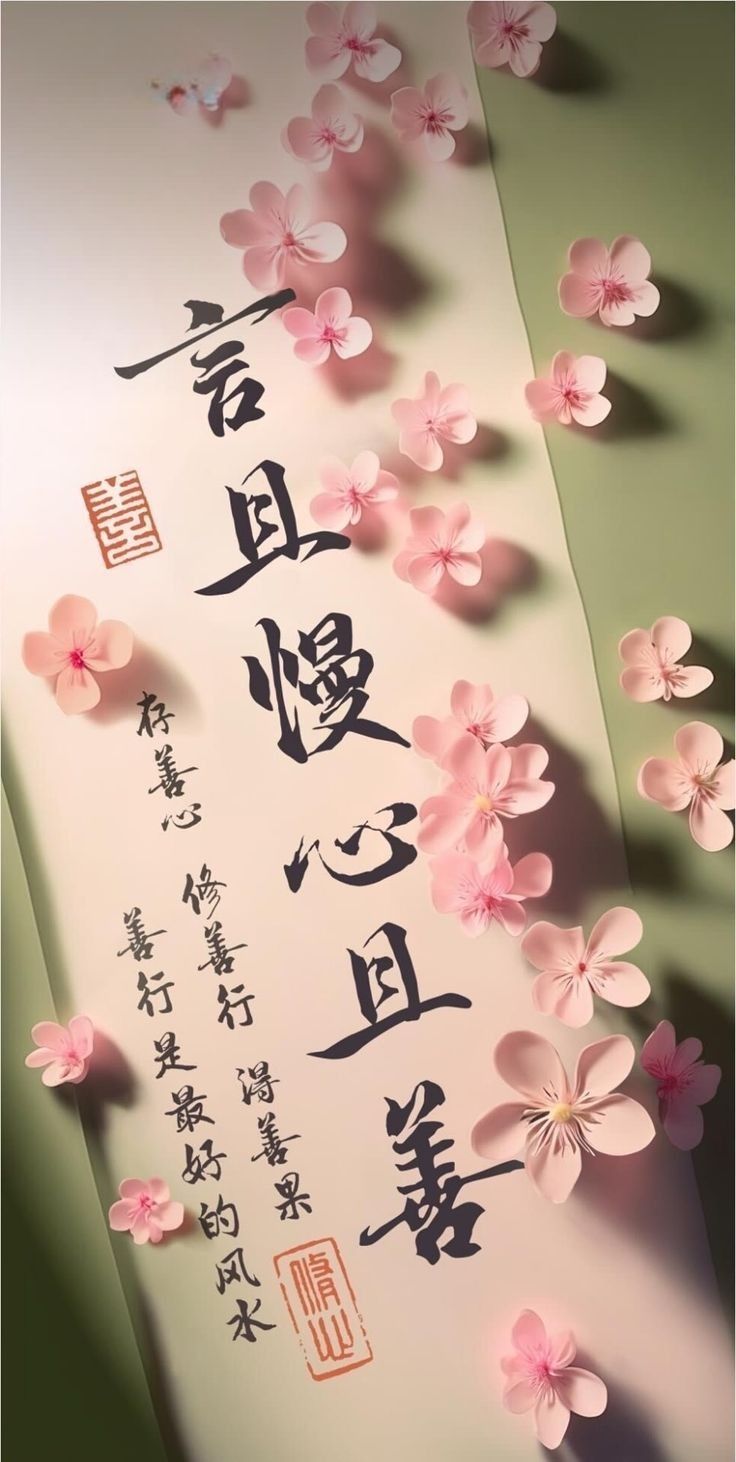 言且慢心且善
善
存善心 修善行 得善果
善行是最好的风水
修心